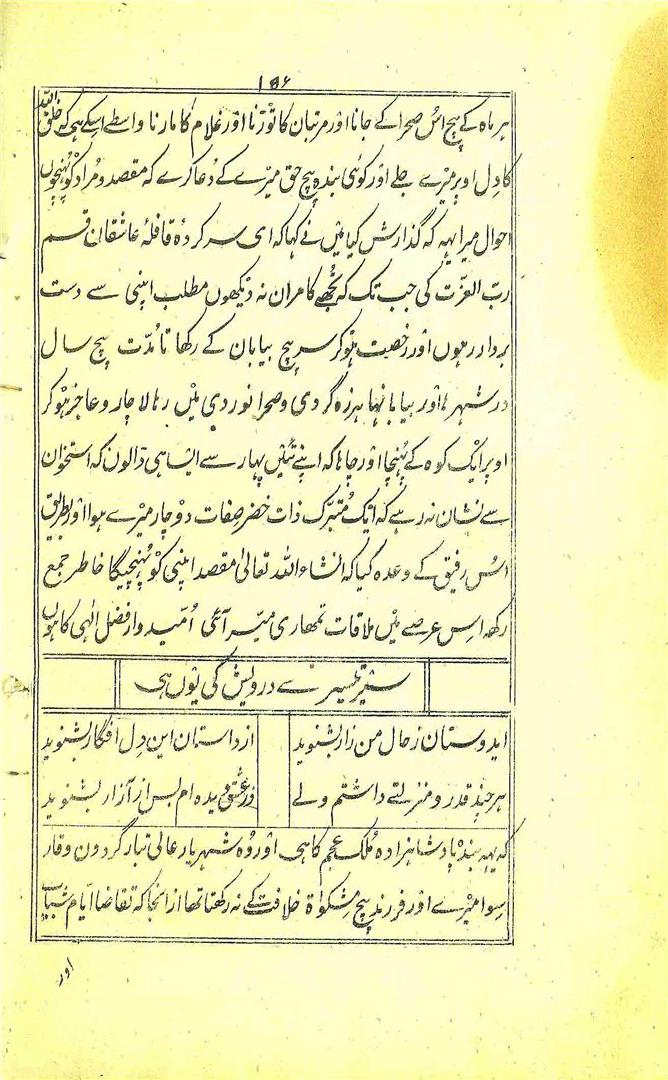 ۱۵۶
ہر ماہ کے بیچ اس صحرا کے جانا اور مرتبان کا توڑنا اور غلام کا مارنا واسطے اسکے ہی کہ خلق اللہ
کا دل اوپر میرے جلے اور کوئی بندہ بیچ حق میرے کے دعا کرے کہ مقصد و مراد کو پہنچوں
احوال میرا یہہ کہ گذارش کیا میں نے کہا کہ ای سر کردۂ قافلۂ عاشقان قسم
رب العزت کی جب تک کہ تجھے کامران نہ دیکھوں مطلب اپنی سے دست
بردار رہوں اور رخصت ہوکر سر بیچ بیابان کے رکھا تا مدت پنج سال
در شہرہا اور بیابانہا ہرزہ گردی و صحرا نوردی میں رہا لاچار و عاجز ہوکر
اوپر ایک کوہ کے پہنچا اور چاہا کہ اپنے تئیں پہار سے ایسا ہی ڈالون کہ استخوان
سے نشان نہ رہے کہ ایک متبرک ذات خضر صفات دوچار میرے ہوا اور بطریق
اس رفیق کے وعدہ کیا کہ انشاء اللہ تعالیٰ مقصد اپنی کو پہنچیگا خاطر جمع
رکھہ اس عرصے میں ملاقات تمھاری میسر آئی امیدوار فضل الٰہی کا ہوں
سیر تیسرے درویش کی یوں ہی
ایدوستان ز حال من زار بشنوید از داستان این دل افگار بشنوید
ہر چند قدر و منزلتے داشتم ولے در عشق دیدہ ام بس از آزار بشنوید
کہ یہہ بندہ پادشاہزادہ ملک عجم کا ہی اور وہ شہریار عالی تبار گردون وقار
سوا میرے اور فرزند بیچ مشکوٰۃ خلافت کے نہ رکھتا تھا از انجا کہ تقاضا ایام شباب
اور